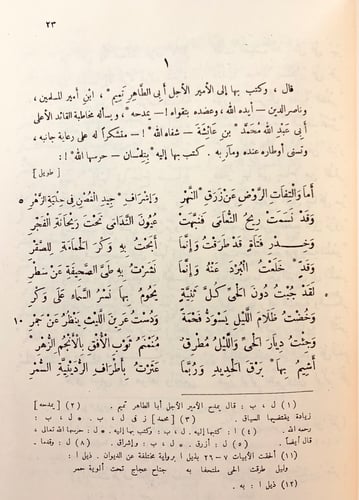 ٢٣
١
قال ، وكتب بها إلى الأمير الأجل أبى الطاهر تميم ، ابن أمير المسلمين ،
وناصر الدين — أيده الله ، وعضده بتقواه ! — يمدحه ، ويسأله مخاطبة القائد الأعلى
أبى عبد الله محمد بن عائشة — شفاه الله ! — متشكرا له على رعاية جانبه ،
وتسنى أوطاره عنده ومآربه . كتب بها إليه بتلمسان — حرسها الله ! :
[ طويل ]
أَما وَالتِفاتِ الرَّوْضِ عَنْ زَرَقِ النَّهْرِ وَإِشْرافِ جِيدِ الغُصْنِ فى حِلْيَةِ الزَّهْرِ
وَقَدْ نَسَمَتْ رِيحُ النُّعامَى فَنَبَّهَتْ عُيُونَ النَّدامَى تَحْتَ رَيْحانَةِ الفَجْرِ ٥
وَخِدْرِ فَتاةٍ قَدْ طَرَقْتُ وَإِنَّما أَبَحْتُ بِهِ وَكْرَ الحَمامَةِ لِلصَّقْرِ
وَقَدْ خَلَعْتُ البُرْدَ عَنْهُ وَإِنَّما نَشَرْتُ بِهِ طَىَّ الصَّحِيفَةِ عَنْ سَطْرِ
لَقَدْ جُبْتُ دُونَ الحَىِّ كُلَّ ثَنِيَّةٍ يَحُومُ بِها نَسْرُ السَّماءِ عَلَى وَكْرِ
وَخُضْتُ ظَلامَ اللَّيْلِ يَسْوَدُّ فَحْمَةً وَدُسْتُ عَرِينَ اللَّيْثِ يَنْظُرُ عَنْ جَمْرِ ١٠
وَجِئْتُ دِيارَ الحَىِّ وَاللَّيْلُ مُطْرِقٌ مُنَمْنَمُ ثَوْبِ الأُفْقِ بِالأَنْجُمِ الزُّهْرِ
أَشِيمُ بِها بَرْقَ الحَدِيدِ وَرُبَّما عَثَرْتُ بِأَطْرافِ الرُّدَيْنِيَّةِ السُّمْرِ
(١) ل ، ب : قال يمدح الأمير الأجل أبا الطاهر تميم . (٢) [ يمدحه ]
زيادة يقتضيها السياق . (٣) [ محمد ] ز فى ل ، ب .
رحمه الله . (٤) ا : كتبها إليه . ل ، ب : وكتب بها إليه حرسها الله ، تعالى ،
قال أيضاً . (٥) ل : أزرق . ب : وإشراق . (٨) ل : وقدما .
(١١) ألحقت الأبيات ٧ – ٢٦ بذيل ا برواية مختلفة عن الديوان . ذيل ا :
وليل طرقت الحى ملتحفا به جناح عجاج تحت ألوية حمر
(١٢) ذيل ا : به .